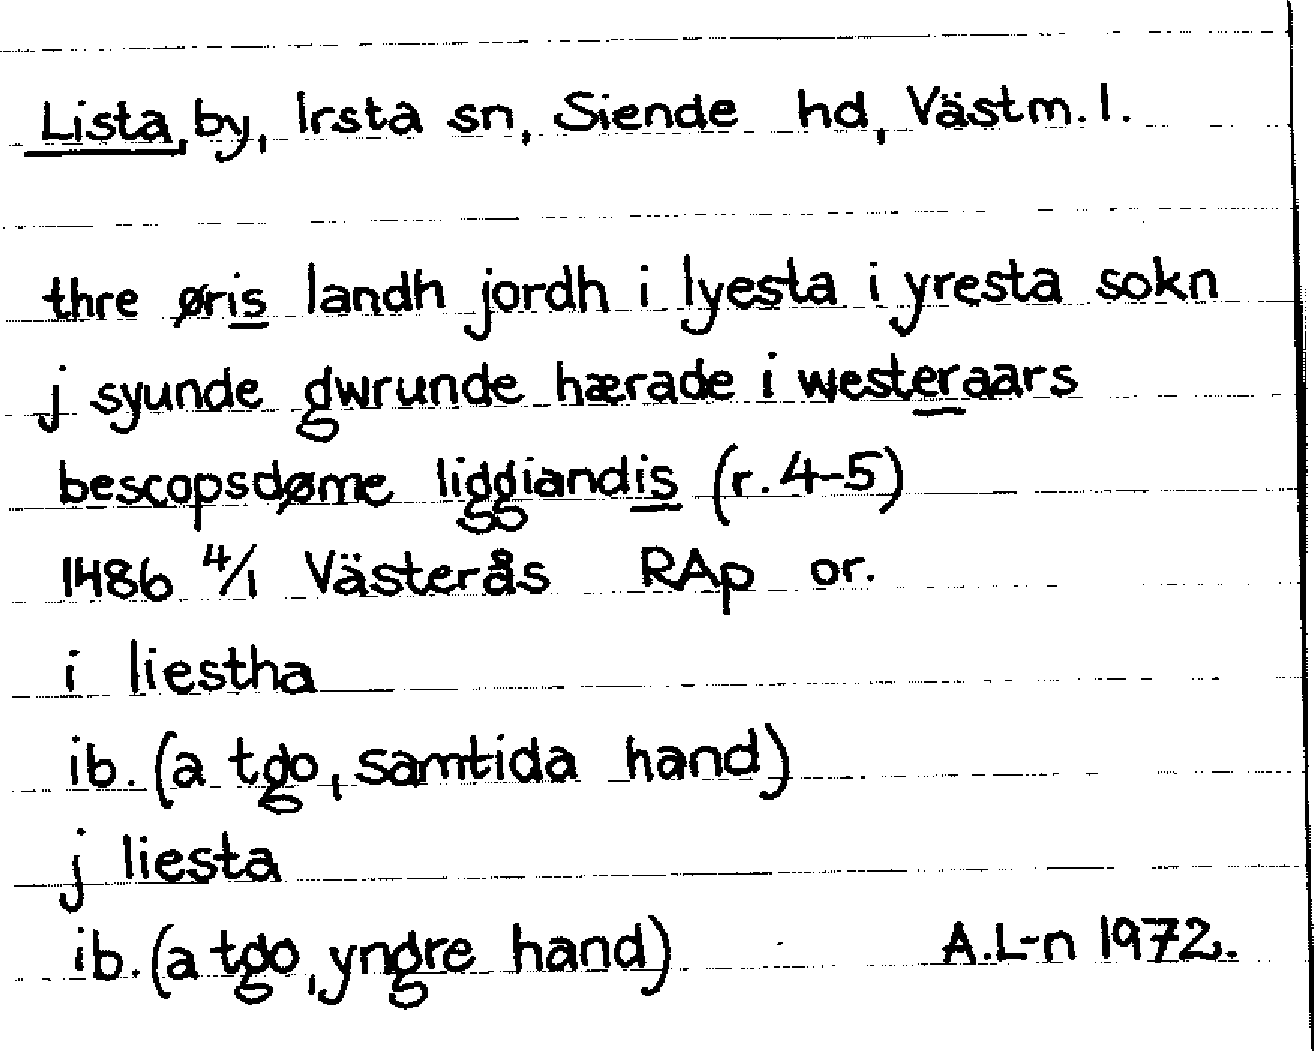 Lista, by, Irsta sn, Siende hd, Västm. l.
thre øris landh jordh i lyesta i yresta sokn
j syunde gwrunde hærade i westeraars
bescopsdøme liggiandis (r. 4-5)
1486 4/1 Västerås RAp or.
i liestha
ib. (a tgo, samtida hand)
j liesta
ib. (a tgo, yngre hand) A.L-n 1972.